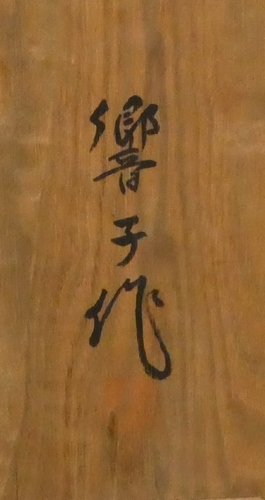 響子作